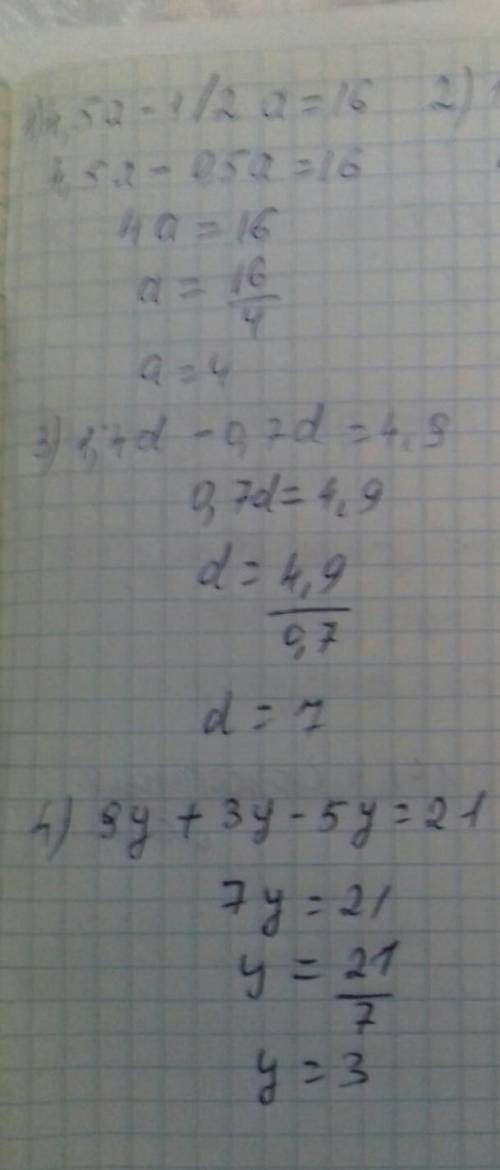 1) 4,5a - 1/2 a = 16 2)
4,5a - 0,5a = 16
4a = 16
a = 16/4
a = 4
3) 1,4d - 0,7d = 4,9
0,7d = 4,9
d = 4,9/0,7
d = 7
4) 9y + 3y - 5y = 21
7y = 21
y = 21/7
y = 3